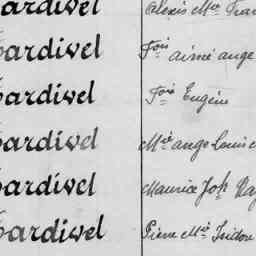 ardivel Alexis Mie Fran
Tardivel Fois aimé ange
Tardivel Fois Eugène
Tardivel Mie ange Louis
Tardivel Maurice Joph
Tardivel Pierre Mie Isidore